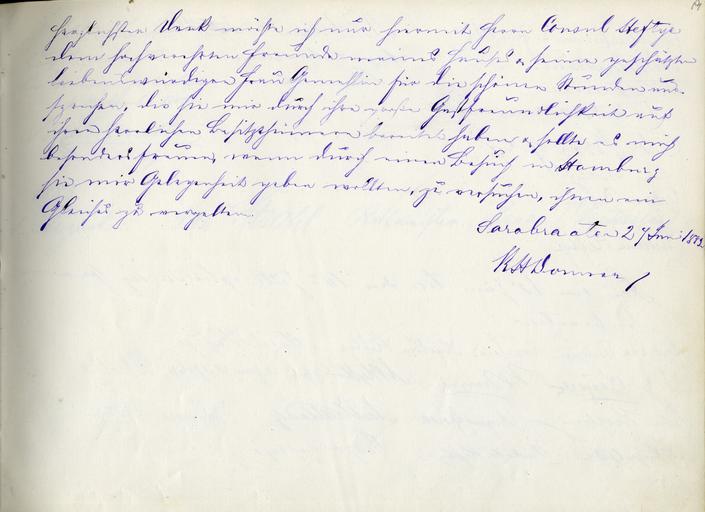 herzlichsten Dank möchte ich nur hiermit Herrn Consul Heftye
dem hochverehrten Freunde meines Hauses & seiner geschätzten
liebenswürdigen Frau Gemahlin für die schönen Stunden aus-
sprechen, die sie mir durch ihre große Gastfreundlichkeit auf
ihren herrlichen Besitzthümern bereitet haben & sollte es mich
besonders freuen, wenn durch einen Besuch in Hamburg
sie mir Gelegenheit geben wollten, zu versuchen, ihnen ein
Gleiches zu vergelten.
Sarabraaten 27 Juni